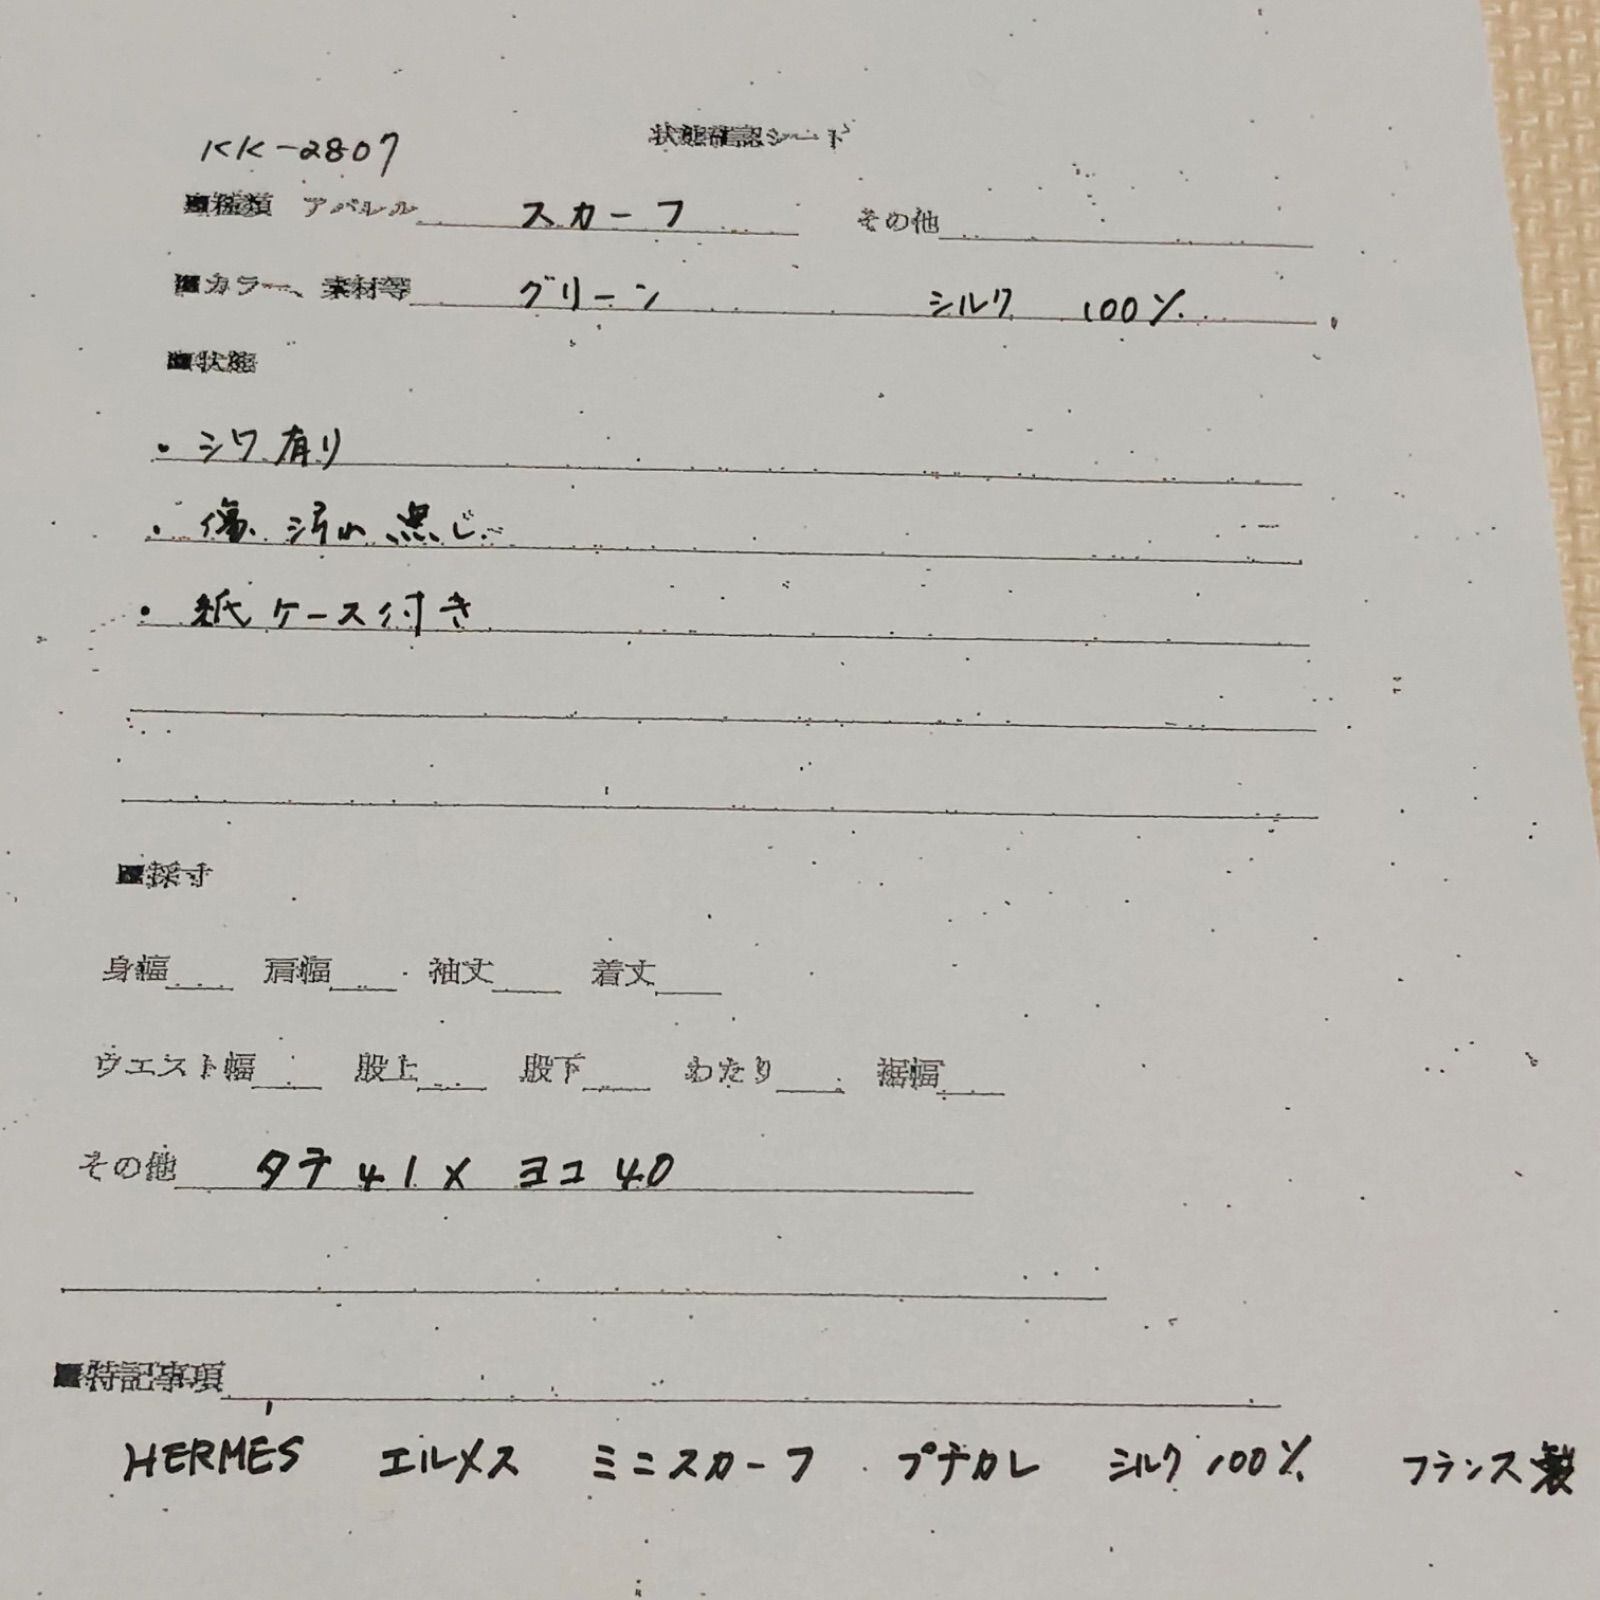 KK-2807
状態確認シート
■種類 アパレル スカーフ その他
■カラー、素材等 グリーン シルク 100%
■状態
・シワ有り
・傷、汚れ無し
・紙ケース付き
■採寸
身幅 肩幅 袖丈 着丈
ウエスト幅 股上 股下 わたり 裾幅
その他 タテ41×ヨコ40
■特記事項
HERMES エルメス ミニスカーフ プチカレ シルク100% フランス製